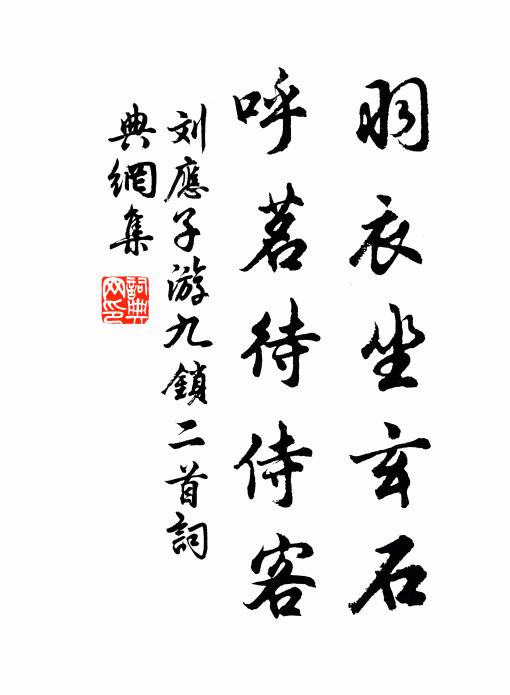 羽衣坐玄石
呼茗待侍客
刘應子游九鎖二首詞
典網集
詞典
网印